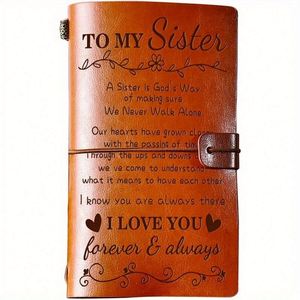 TO MY Sister
A Sister Is God's Way
of making sure
We Never Walk Alone.
Our hearts have grown close
with the passing of time
Through the ups and downs
we've come to understand
what it means to have each other
I know you are always there
I LOVE YOU
forever & always